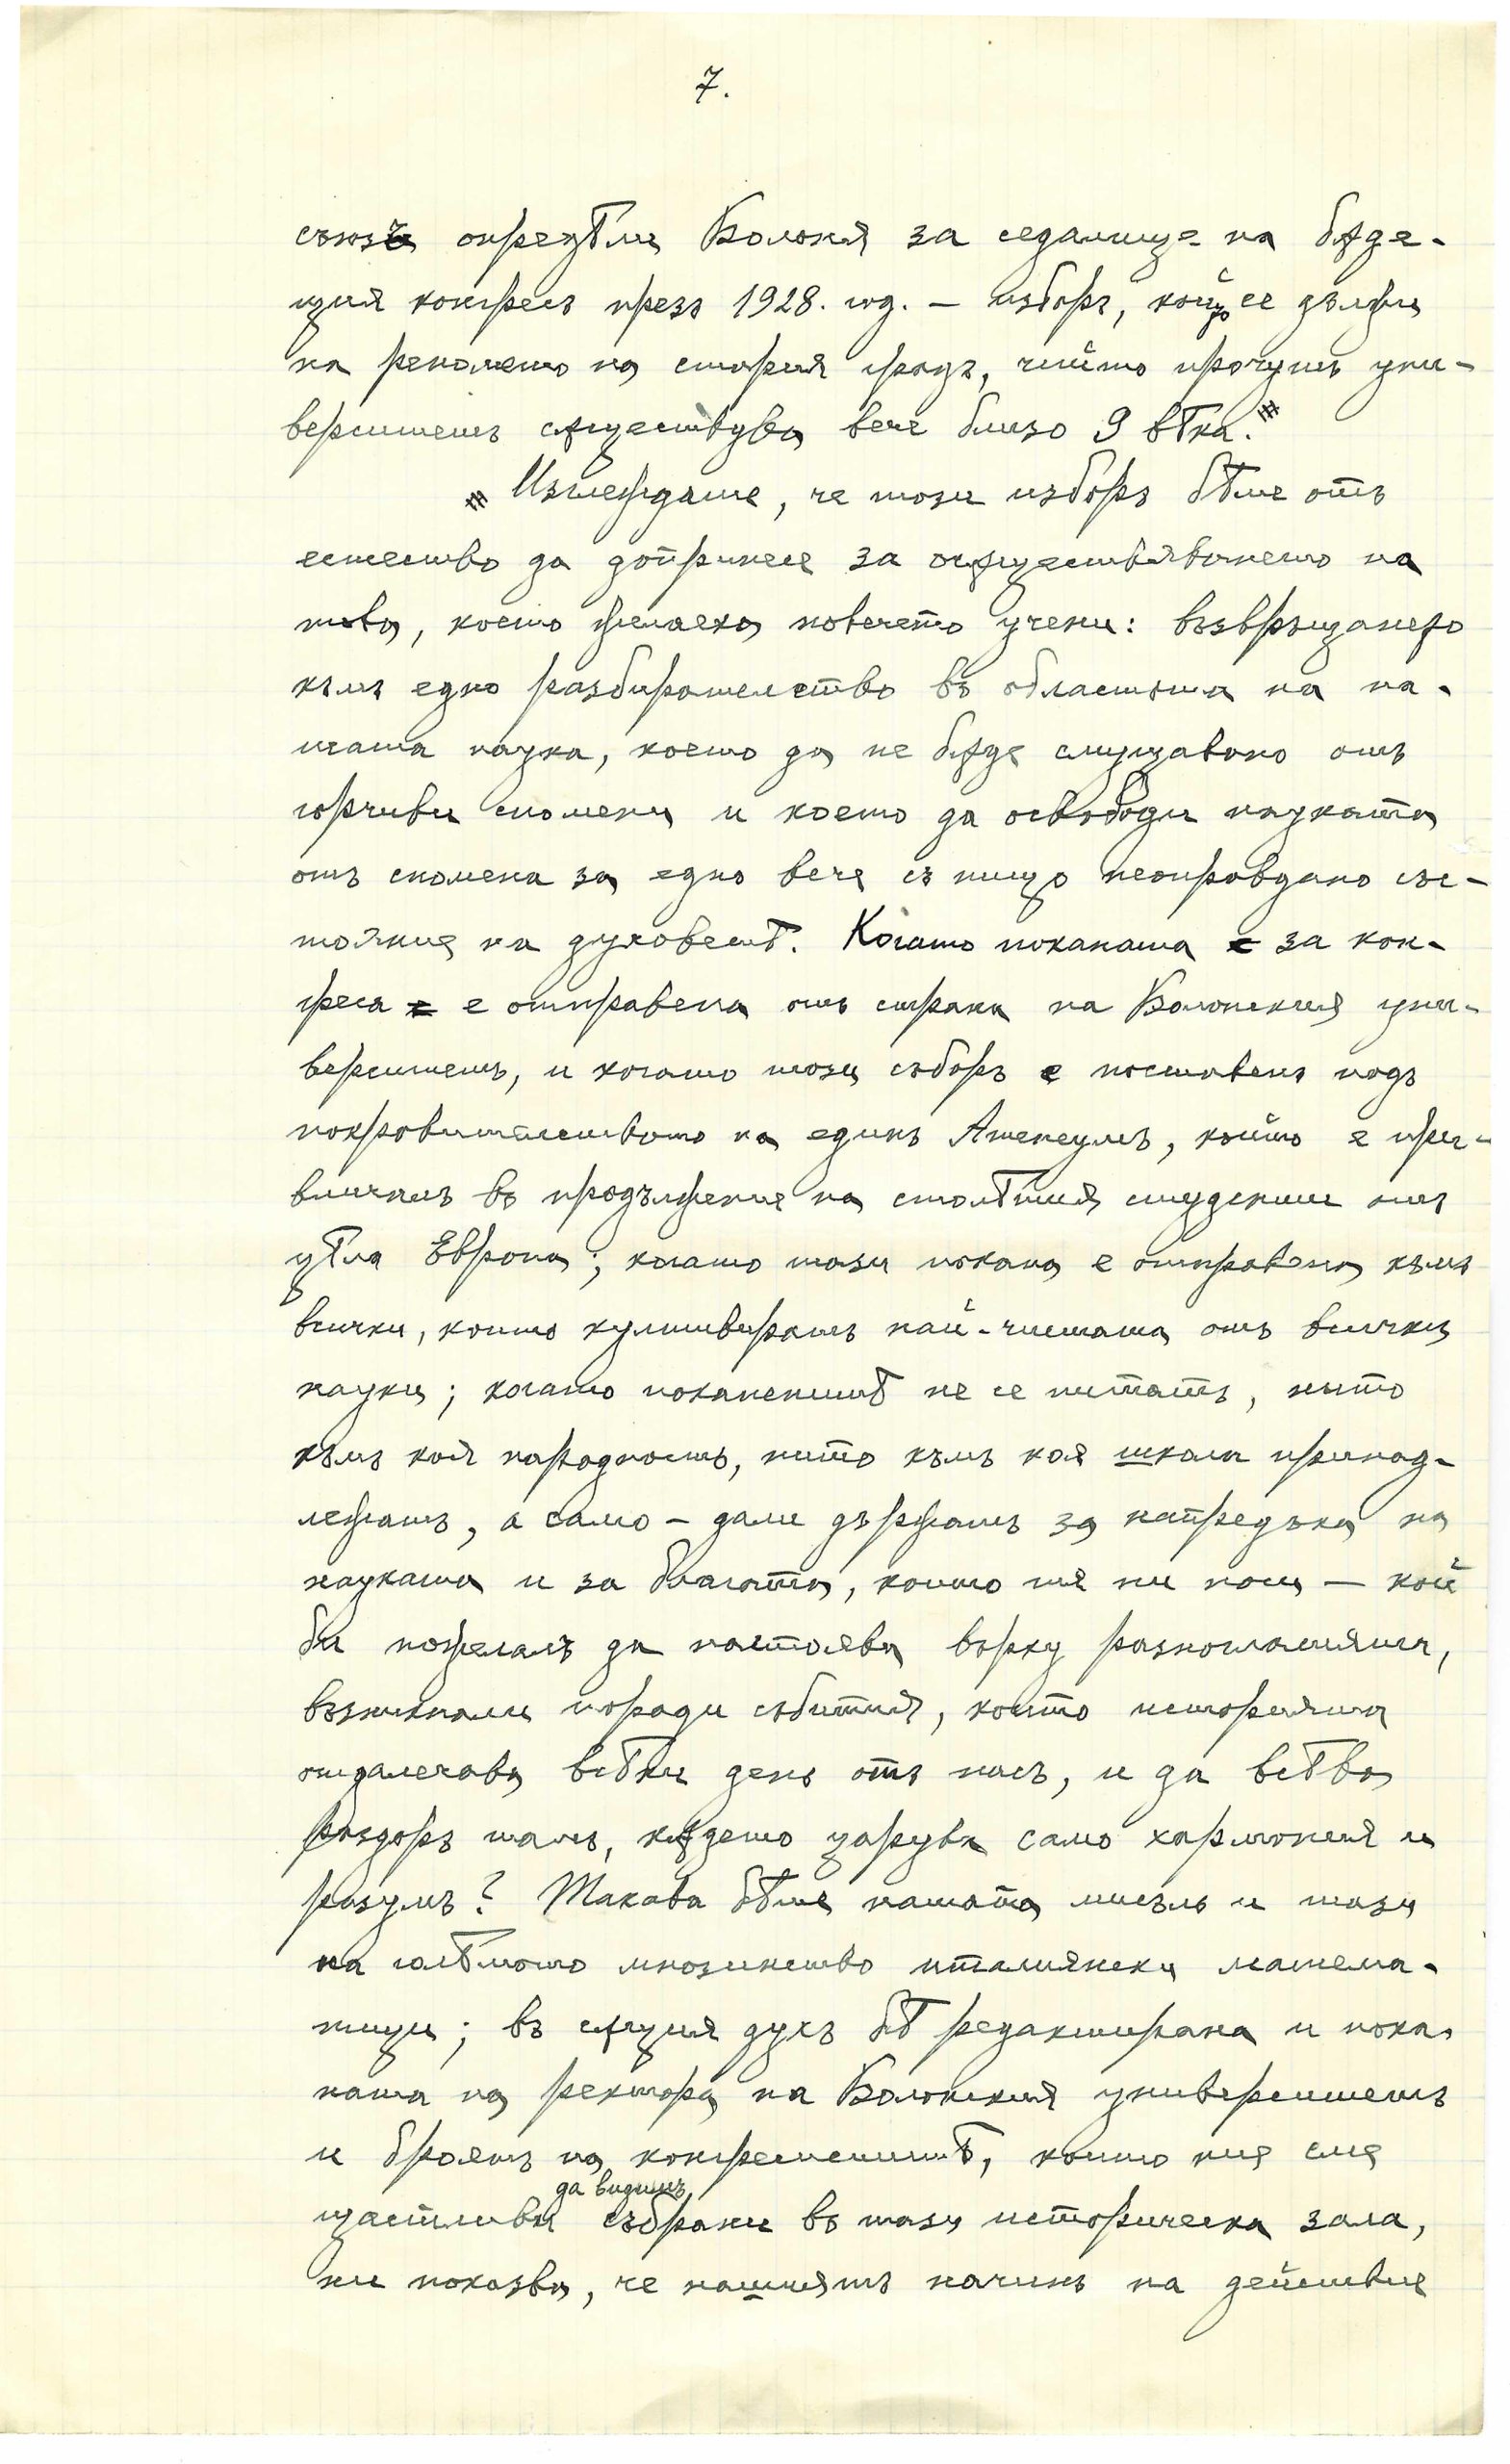 7.
съюзъ опредѣли Болоня за седалище на бѫде-
щия конгресъ презъ 1928. год. – изборъ, който се дължи
на реномето на стария градъ, чийто прочутъ уни-
верситетъ сѫществува вече близо 9 вѣка.#
# Изглеждаше, че този изборъ бѣше отъ
естество да допринесе за осѫществяването на
това, което желаеха повечето учени: възвръщането
къмъ едно разбирателство въ областьта на на-
шата наука, което да не бѫде смущавано отъ
горчиви спомени и което да освободи науката
отъ спомена за едно вече съ нищо неоправдано със-
тояние на духоветѣ. Когато поканата за кон-
греса е отправена отъ страна на Болонския уни-
верситетъ, и когато този съборъ е поставенъ подъ
покровителството на единъ Атенеумъ, който е при-
вличалъ въ продължение на столѣтия студенти отъ
цѣла Европа; когато тази покана е отправена къмъ
всички, които култивиратъ най-чистата отъ всички
науки; когато поканенитѣ не се питатъ, нито
къмъ коя народность, нито къмъ коя школа принад-
лежатъ, а само – дали държатъ за напредъка на
науката и за благата, които тя ни носи – кой
би пожелалъ да настоява върху разногласията,
възникнали поради събития, които историята
отдалечава всѣки день отъ насъ, и да всѣва
раздоръ тамъ, кѫдето царува само хармония и
разумъ? Такава бѣше нашата мисъль и тази
на голѣмото мнозинство италиянски матема-
тици; въ сѫщия духъ бѣ редактирана и пока-
ната на ректора на Болонския университетъ
и броятъ на конгресиститѣ, които ние сме
щастливи да видимъ събрани въ тази историческа зала,
ни показва, че нашиятъ начинъ на действие